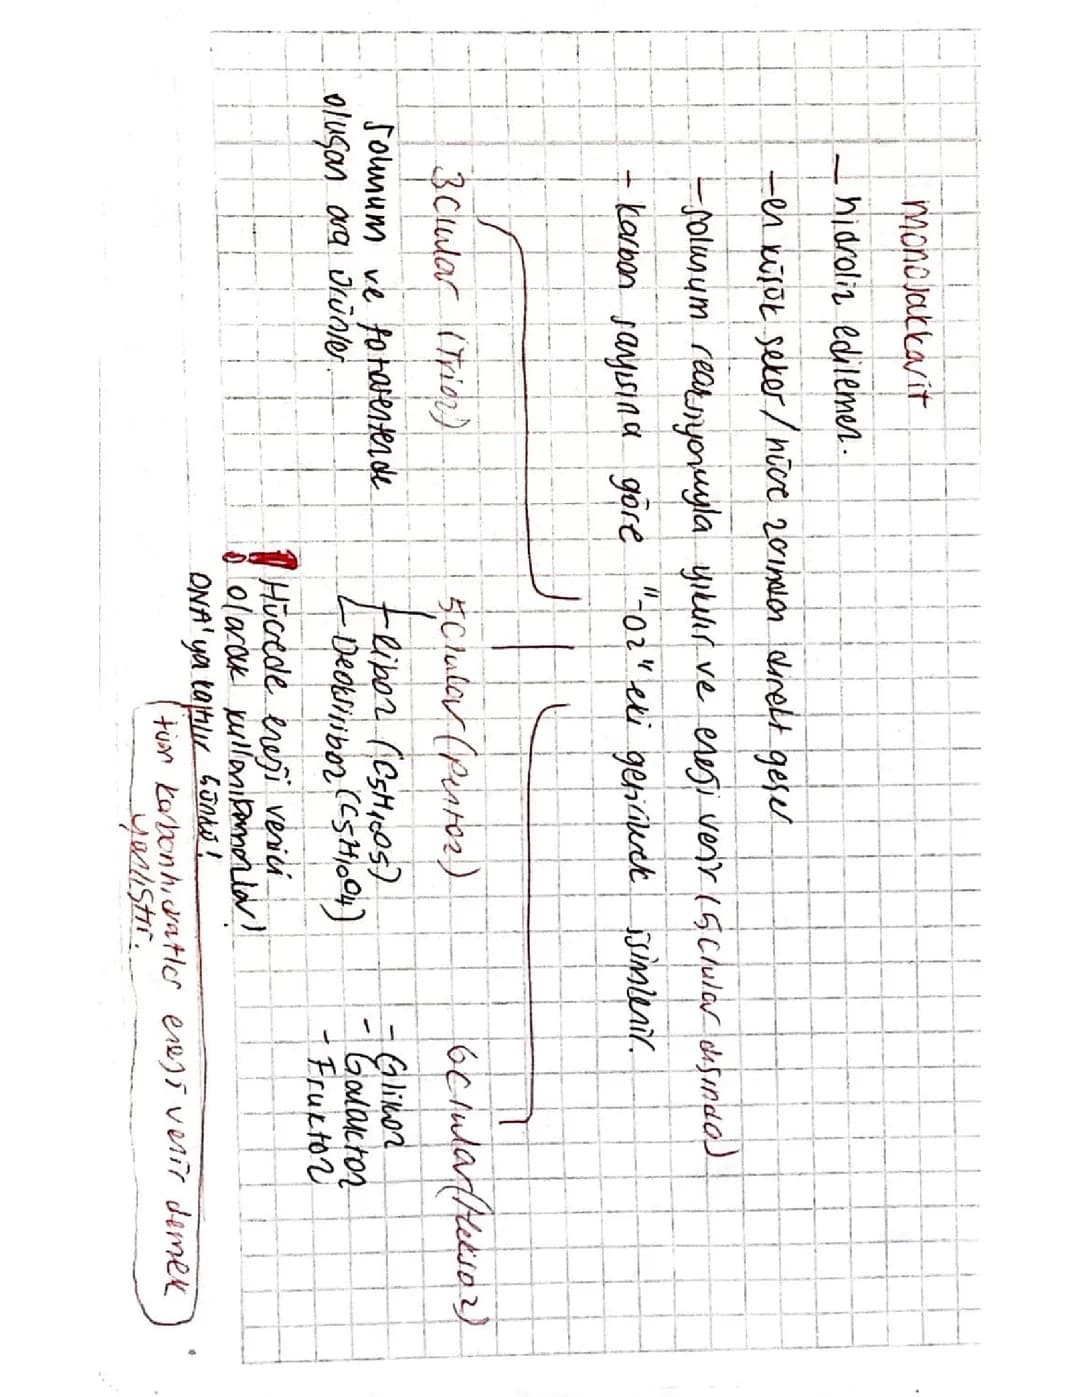 monosakkarit
- hidroliz edilemez.
- en küçük şeker / hücre zarından direkt geçer
- solunum reaksiyonuyla yıkılır ve enerji verir (5C'lular dışında)
- karbon sayısına göre "-oz" eki getirilerek isimlenir.
3C'lular (Trioz)
Solunum ve fotosentezde
oluşan ara ürünler.
5C'lular (pentoz)
- Riboz (C5H10O5)
- Deoksiriboz (C5H10O4)
! Hücrede enerji verici
olarak kullanılamazlar!
DNA'ya katılır çünkü!
6C'lular (Heksoz)
- Glikoz
- Galaktoz
- Fruktoz
tüm karbonhidratlar enerji verir demek
yanlıştır.